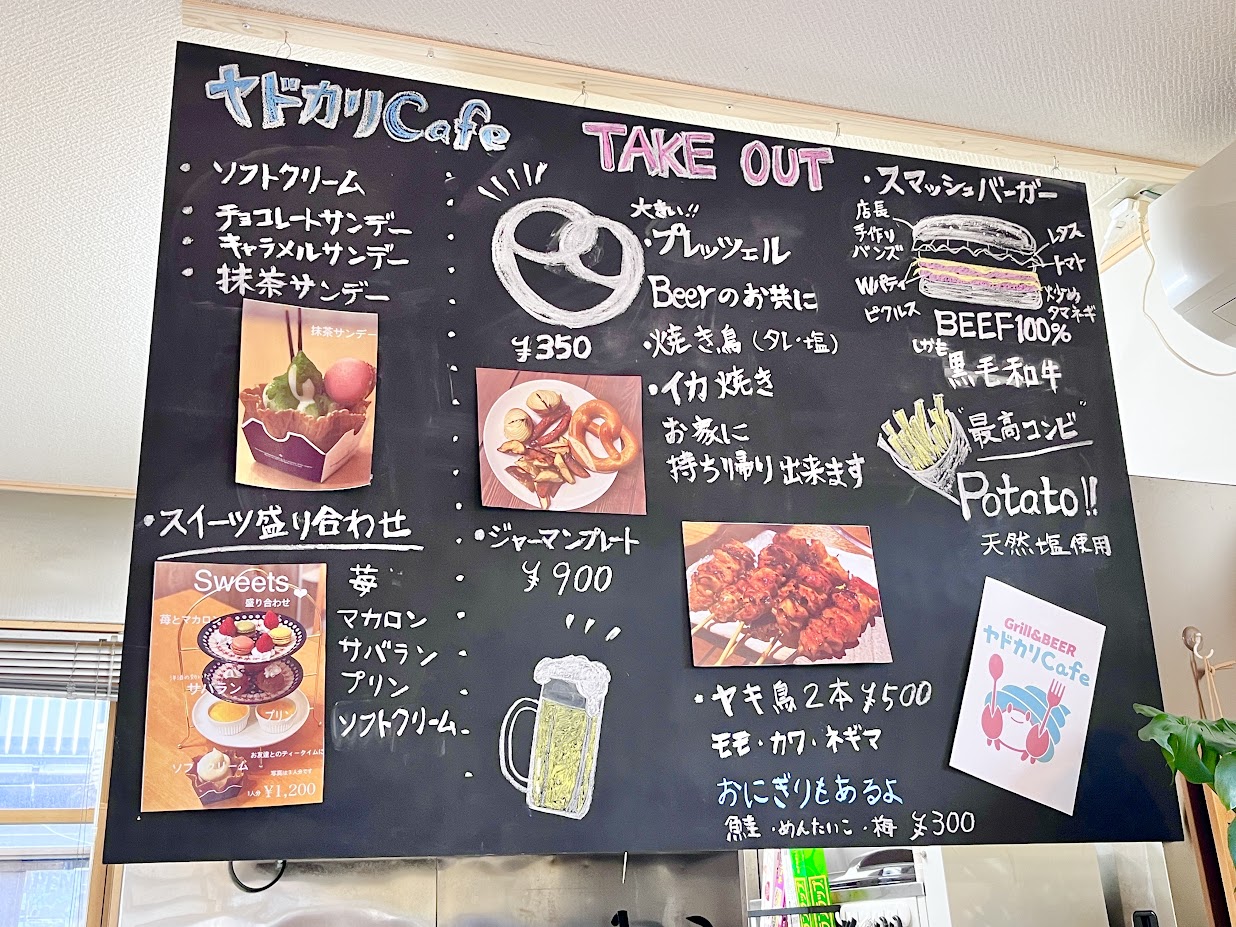 ヤドカリCafe
TAKE OUT
・ソフトクリーム
・チョコレートサンデー
・キャラメルサンデー
・抹茶サンデー
抹茶サンデー
・スイーツ盛り合わせ
Sweets
盛り合わせ
苺とマカロ
サバラン
プリン
お友達とのティータイムに
写真は3人分です
ソフトクリーム
1人分 ¥1,200
苺
マカロン
サバラン
プリン
ソフトクリーム
¥350
大きい!!
・プレッツェル
Beerのお共に
・焼き鳥(タレ・塩)
・イカ焼き
お家に
持ち帰り出来ます
・ジャーマンプレート
¥900
・ヤキ鳥2本 ¥500
モモ・カワ・ネギマ
おにぎりもあるよ
鮭・めんたいこ・梅 ¥300
・スマッシュバーガー
店長
手作り
バンズ
Wパティ
ピクルス
レタス
トマト
炒め
タマネギ
BEEF100%
しかも
黒毛和牛
"最高コンビ"
Potato!!
天然塩使用
Grill&BEER
ヤドカリCafe